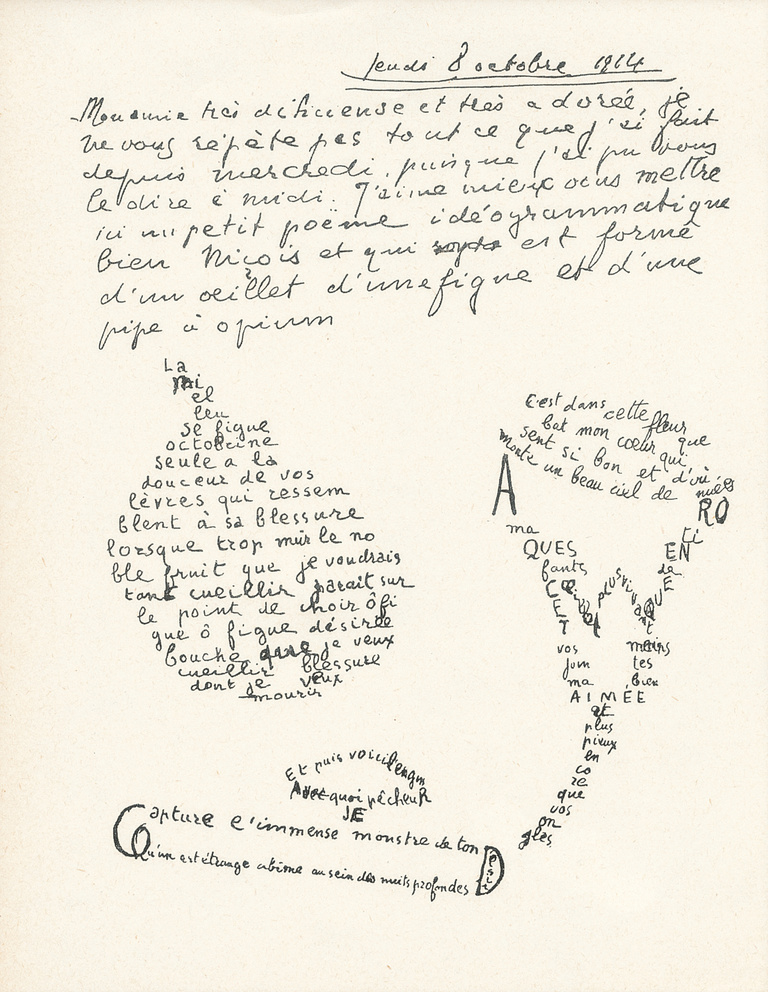 Jeudi 8 octobre 1914
Mon amie très délicieuse et très adorée, je
ne vous répète pas tout ce que j'ai fait
depuis mercredi, puisque j'ai pu vous
le dire à midi. J'aime mieux vous mettre
ici un petit poème idéogrammatique
bien Niçois et qui est formé
d'un œillet d'une figue et d'une
pipe à opium
La
mi
el
leu
se figue
octobrine
seule a la
douceur de vos
lèvres qui ressem
blent à sa blessure
lorsque trop mûr le no
ble fruit que je voudrais
tant cueillir paraît sur
le point de choir ô fi
gue ô figue désirée
bouche que je veux
cueillir blessure
dont je veux
mourir
C'est dans cette fleur que
bat mon cœur qui
sent si bon et d'où
monte un beau ciel de nuées
A RO
ma ti
QUES EN
fants de
CET œillet plus vivant QUE
vos mains
join tes
ma bien
AIMÉE
et
plus
pieux
en
co
re
que
vos
on
gles
Et puis voici l'engin
Avec quoi pêcheur
JE
Capture l'immense monstre de ton
Qu'un art étrange abîme au sein des nuits profondes